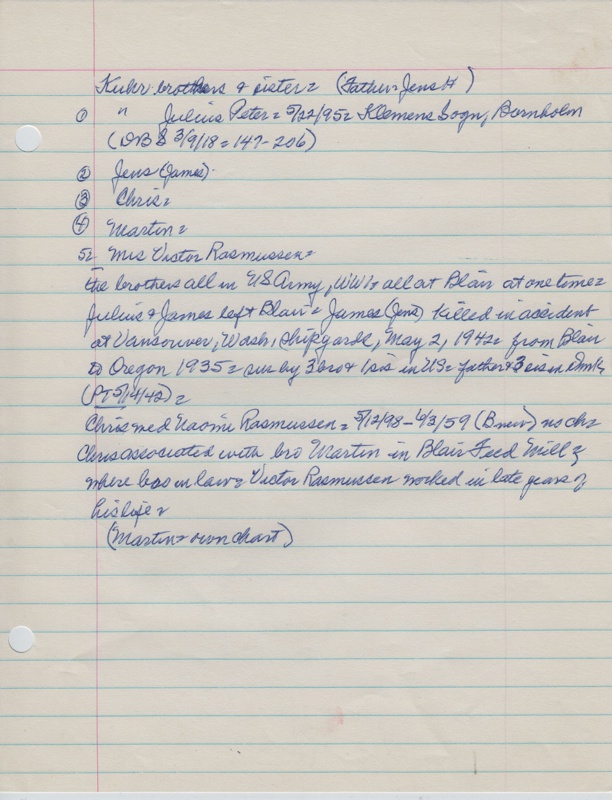 Kuhr brothers & sister = (Father = Jens H)
① " Julius Peter = 5/22/95 = Klemens Sogn, Bornholm
(DBS 3/9/18 = 147-206)
② Jens (James)
③ Chris =
④ Martin =
5 = Mrs Victor Rasmussen =
The brothers all in US Army, WW1 = all at Blair at one time =
Julius & James left Blair = James (Jens) killed in accident
at Vansouver, Wash, shipyards, May 2, 1942 = from Blair
to Oregon 1935 = sur by 3 bro & 1 sis in US = father & 3 sis in Dmk
(PT 5/14/42) =
Chris med Naomi Rasmussen = 5/12/98 - 6/3/59 (Bneir) no ch =
Chris associated with bro Martin in Blair Feed Mill &
where bro in law = Victor Rasmussen worked in late years of
his life =
(Martin = own chart)